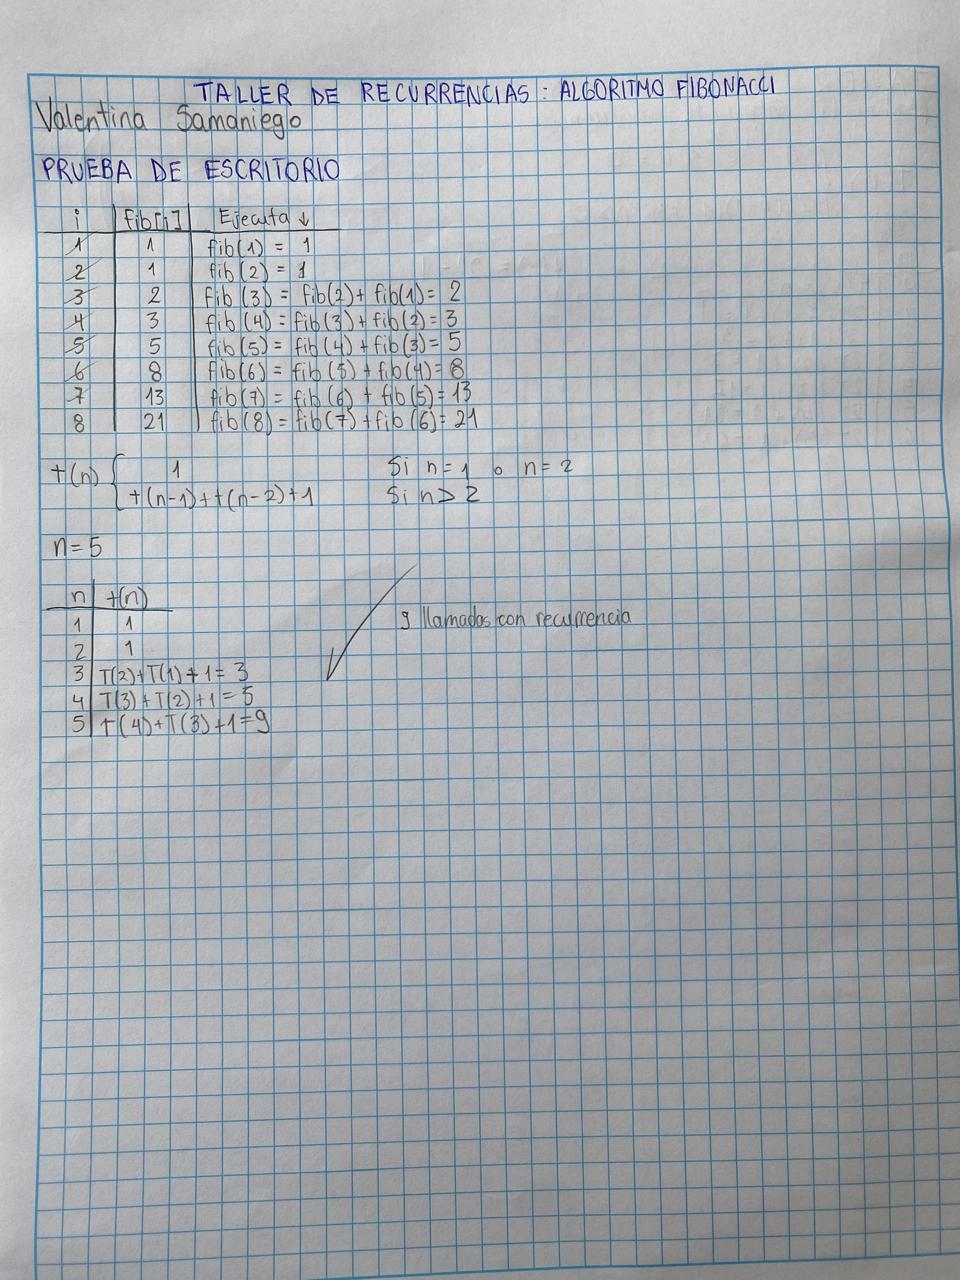 TALLER DE RECURRENCIAS: ALGORITMO FIBONACCI
Valentina Samaniego
PRUEBA DE ESCRITORIO
i fib[i] Ejecuta ↓
1 1 fib(1) = 1
2 1 fib(2) = 1
3 2 fib(3) = fib(2)+ fib(1)= 2
4 3 fib(4) = fib(3)+fib(2)=3
5 5 fib(5) = fib(4)+fib(3)=5
6 8 fib(6) = fib(5)+fib(4)=8
7 13 fib(7) = fib(6) + fib(5)=13
8 21 fib(8) = fib(7)+fib(6)=21
t(n) { 1 Si n=1 o n=2
t(n-1)+t(n-2)+1 Si n>2
n=5
n t(n)
1 1
2 1
3 T(2)+T(1)+1=3
4 T(3)+T(2)+1=5
5 T(4)+T(3)+1=9
9 llamadas con recurrencia